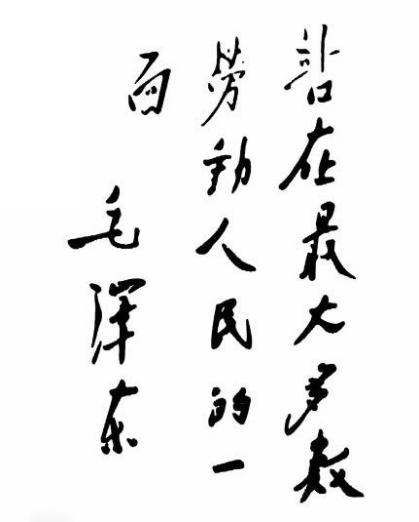 站在最大多数
劳动人民的一
面
毛泽东